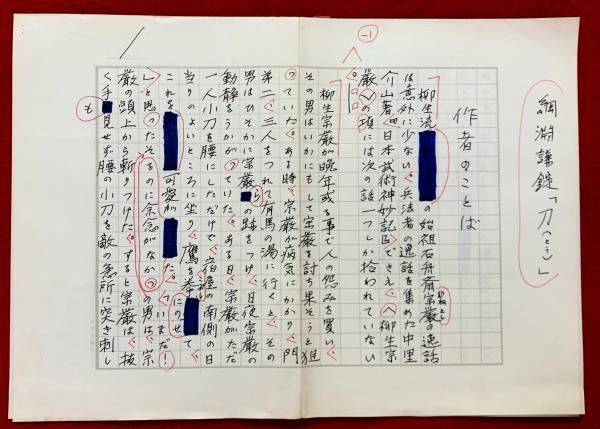 綱淵謙錠「刀(とう)」
作者のことば
柳生流の始祖石舟斎宗厳の逸話
は意外に少ない。兵法者の逸話を集めた中里
介山著『日本武術神妙記』でさえ、〈柳生宗
厳〉の項には次の話一つしか拾われていない
。
柳生宗厳が晩年或る事で人の怨みを買い、
その男はいかにもして宗厳を討ち果そうと狙
っていた。ある時、宗厳が病気にかかり、門
弟二、三人をつれて有馬の湯に行くと、その
男はひそかに宗厳らの跡をつけ、日夜宗厳の
動静をうかがっていた。ある日、宗厳がただ
一人小刀を腰にしただけで、宿屋の南側の日
当りのよいところに坐り、鷹を拳にのせて
これを可愛がた。〈いまだ!
〉と思ったそるのに余念がなかつの男は、宗
厳の頭上から斬りつけた。すると宗厳は、抜
く手も見せず腰の小刀を敵の急所に突き刺し
-1